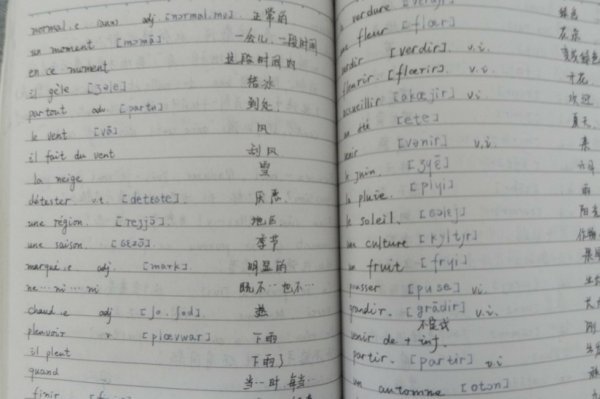 normal.e (aux) adj [nɔrmal.mo] 正常的
un moment [mɔmɑ̃] 一会儿，一段时间
en ce moment 这段时间内
il gèle [ʒəle] 结冰
partout adv. [partu] 到处
le vent [vɑ̃] 风
il fait du vent 刮风
la neige 雪
détester v.t. [deteste] 厌恶
une région. [reʒjɔ̃] 地区
une saison. [sɛzɔ̃] 季节
marqué.e adj. [mark] 明显的
ne…ni…ni 既不…也不…
chaud.e adj [ʃo. ʃod] 热
pleuvoir v. [plœvwar] 下雨
il pleut 下雨了
quand 当…时 每当…
finir
verdure [verdyr] 绿色
fleur [flœr] 花朵
verdir [verdir] v.i. 变成绿色
fleurir. [flœrir] v.i. 开花
accueillir [akœjir] v.i 欢迎
un été [ete] 夏天
venir [vənir] v.i. 来
le juin. [ʒyɛ̃] 六月
la pluie. [plyi] 雨
le soleil. [sɔlɛj] 阳光
un culture [kyltyr] 作物
un fruit [fryi] 果
pousser [puse] v.i 生
grandir. [grɑ̃dir] v.i.
venir de + inf. 刚
partir. [partir] v.i
un automne [otɔn]